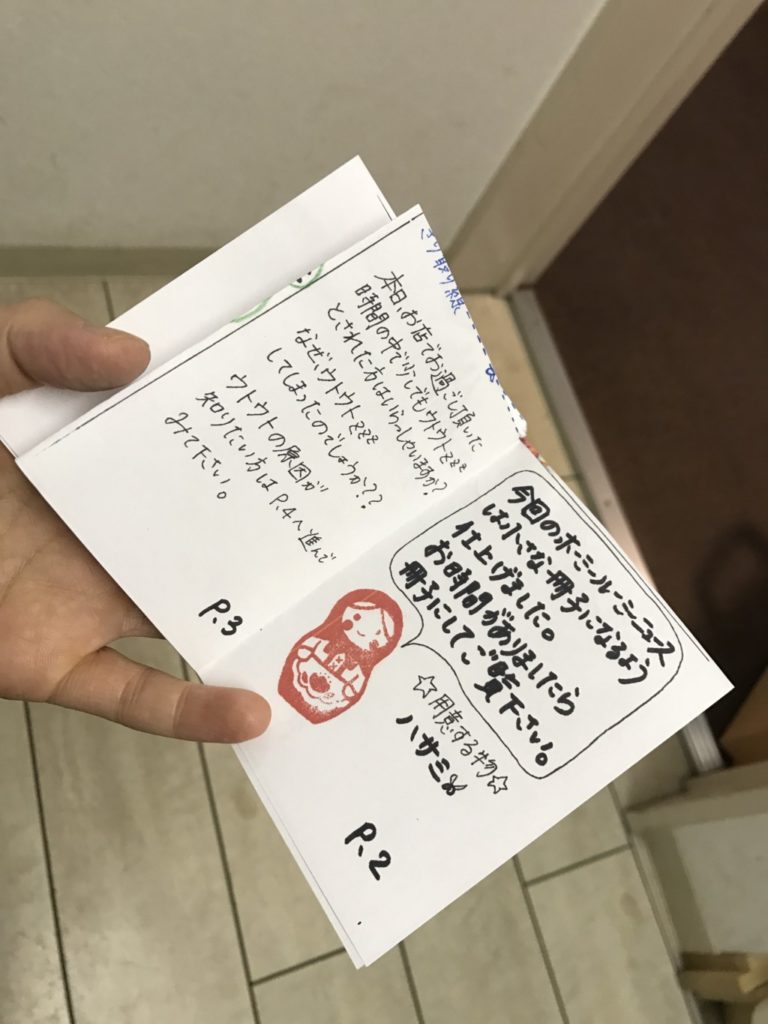 今回のホニールーシーニュース
は小さな冊子になるよう
仕上げました。
お時間がありましたら
冊子にしてご覧下さい。
☆用意する物☆
ハサミ
P.2
本日、お店でお過ごし頂いた
時間の中で少しでもウトウトzzz
とされた方はいらっしゃいますか?
なぜ、ウトウトzzz
してしまったのでしょうか??
ウトウトの原因が
知りたい方はP.4へ進んで
みて下さい。
P.3
きり取り線